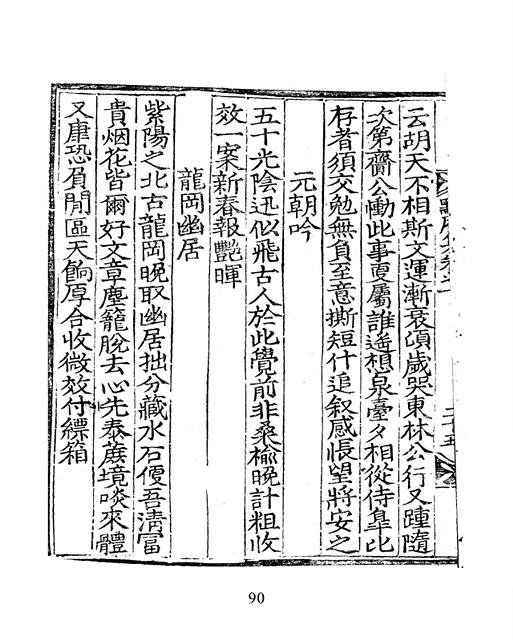 二十五
云胡天不相斯文運漸衰頌歲哭東林公行又踵隨
次第齎公慟此事更屬誰遙想泉臺夕相從侍皐比
存者須交勉無負至意撕短什追叙感悵望將安之
元朝吟
五十光陰迅似飛古人於此覺前非桑榆晚計粗收
效一案新春報艷暉
龍岡幽居
紫陽之北古龍岡晚取幽居拙分藏水石便吾淸富
貴烟花皆爾好文章塵籠脫去心先泰蔗境啖來體
又康恐負閒區天餉厚合收微效付縹箱
90